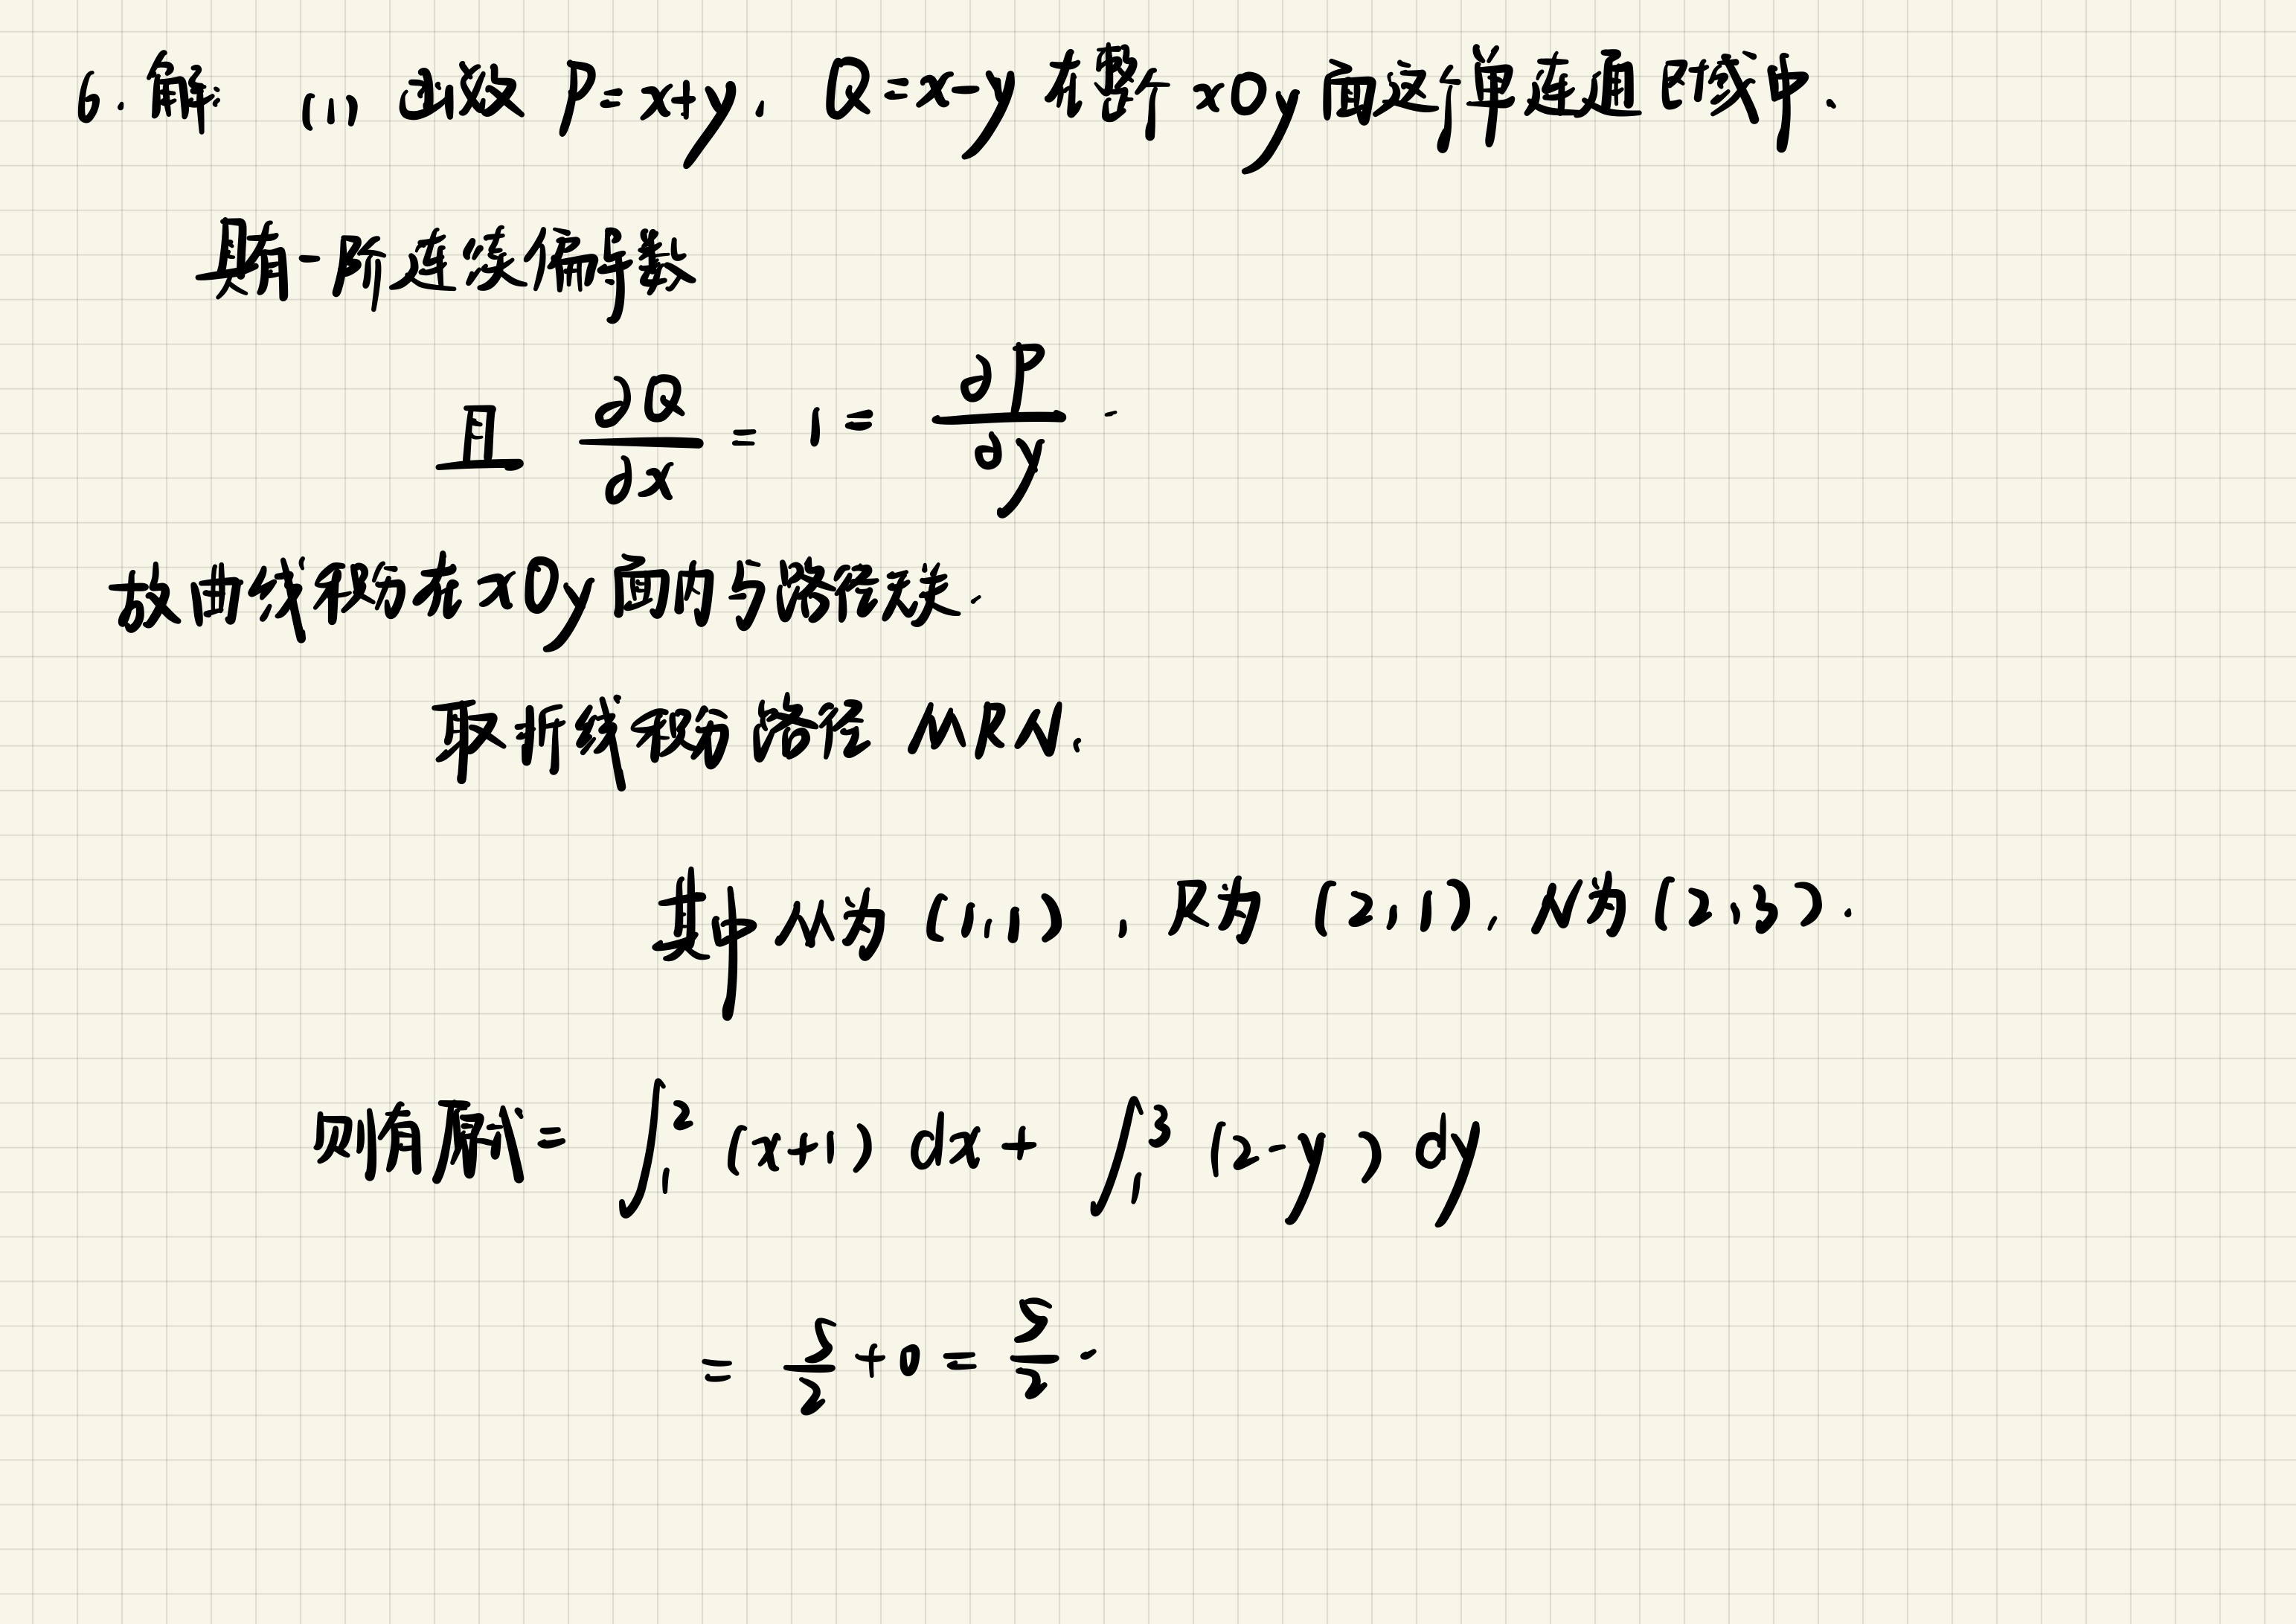 6. 解: (1) 函数 P=x+y, Q=x-y 在整个 xOy 面这个单连通区域中,
具有一阶连续偏导数
且 ∂Q/∂x = 1 = ∂P/∂y.
故曲线积分在 xOy 面内与路径无关.
取折线积分路径 MRN.
其中 M为 (1,1), R为 (2,1), N为 (2,3).
则有原式= ∫₁² (x+1) dx + ∫₁³ (2-y) dy
= 5/2 + 0 = 5/2.